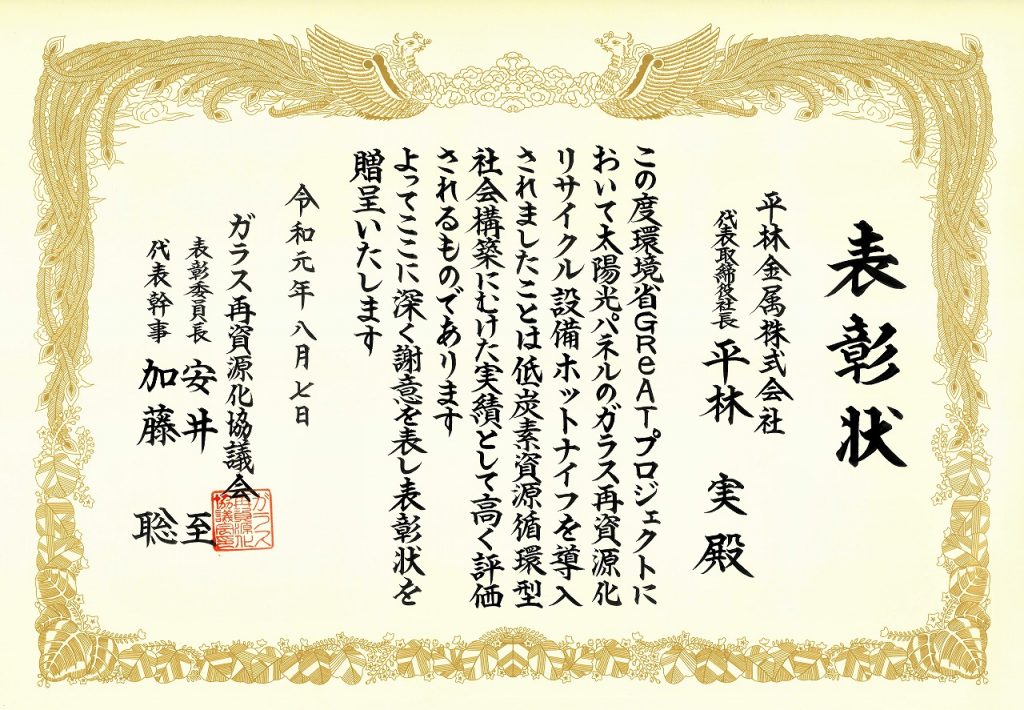 表彰状
平林金属株式会社
代表取締役社長 平林 実 殿
この度環境省GReATプロジェクトに
おいて太陽光パネルのガラス再資源化
リサイクル設備ホットナイフを導入
されましたことは低炭素資源循環型
社会構築にむけた実績として高く評価
されるものであります
よってここに深く謝意を表し表彰状を
贈呈いたします
令和元年八月七日
ガラス再資源化協議会
表彰委員長 安井 至
代表幹事 加藤 聡
ガラス
再資源化
協議会印